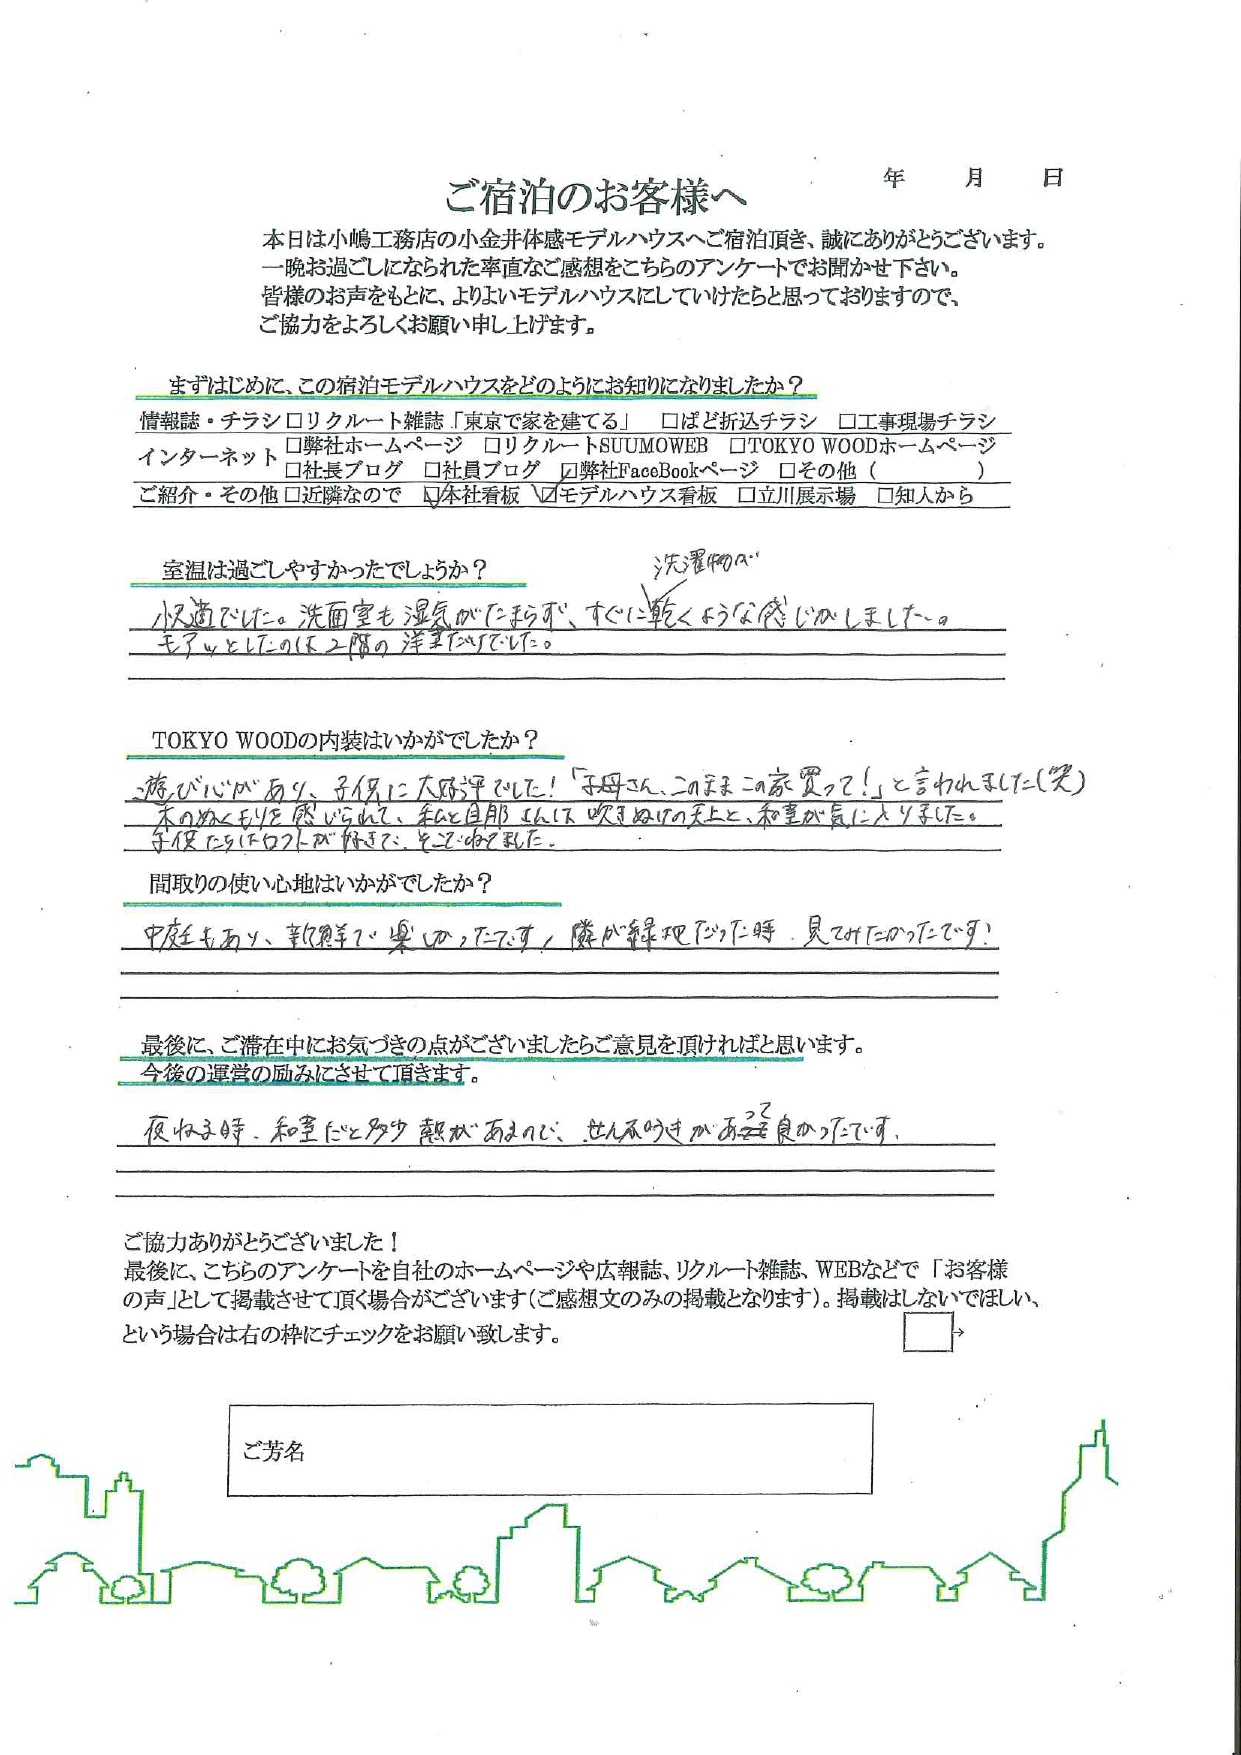 年　月　日
ご宿泊のお客様へ
本日は小嶋工務店の小金井体感モデルハウスへご宿泊頂き、誠にありがとうございます。
一晩お過ごしになられた率直なご感想をこちらのアンケートでお聞かせ下さい。
皆様のお声をもとに、よりよいモデルハウスにしていけたらと思っておりますので、
ご協力をよろしくお願い申し上げます。
まずはじめに、この宿泊モデルハウスをどのようにお知りになりましたか？
情報誌・チラシ □リクルート雑誌「東京で家を建てる」 □ぱど折込チラシ □工事現場チラシ
インターネット □弊社ホームページ □リクルートSUUMOWEB □TOKYO WOODホームページ
□社長ブログ □社員ブログ ☑弊社FaceBookページ □その他（　　　）
ご紹介・その他 □近隣なので ☑本社看板 ☑モデルハウス看板 □立川展示場 □知人から
室温は過ごしやすかったでしょうか？
洗濯物が
快適でした。洗面室も湿気がたまらず、すぐに乾くような感じがしました。
モアッとしたのは2階の洋室だけでした。
TOKYO WOODの内装はいかがでしたか？
遊び心があり、子供に大好評でした！「お母さん、このままこの家買って！」と言われました（笑）
木のぬくもりを感じられて、私と旦那さんは吹きぬけの天上と、和室が気に入りました。
子供たちはロフトが好きで、そこでねてました。
間取りの使い心地はいかがでしたか？
中庭もあり、新鮮で楽しかったです、隣が緑地だった時、見てみたかったです！
最後に、ご滞在中にお気づきの点がございましたらご意見を頂ければと思います。
今後の運営の励みにさせて頂きます。
夜ねる時、和室だと多少熱があるので、せん風きがあって良かったです。
ご協力ありがとうございました！
最後に、こちらのアンケートを自社のホームページや広報誌、リクルート雑誌、WEBなどで「お客様
の声」として掲載させて頂く場合がございます（ご感想文のみの掲載となります）。掲載はしないでほしい、
という場合は右の枠にチェックをお願い致します。 □→
ご芳名